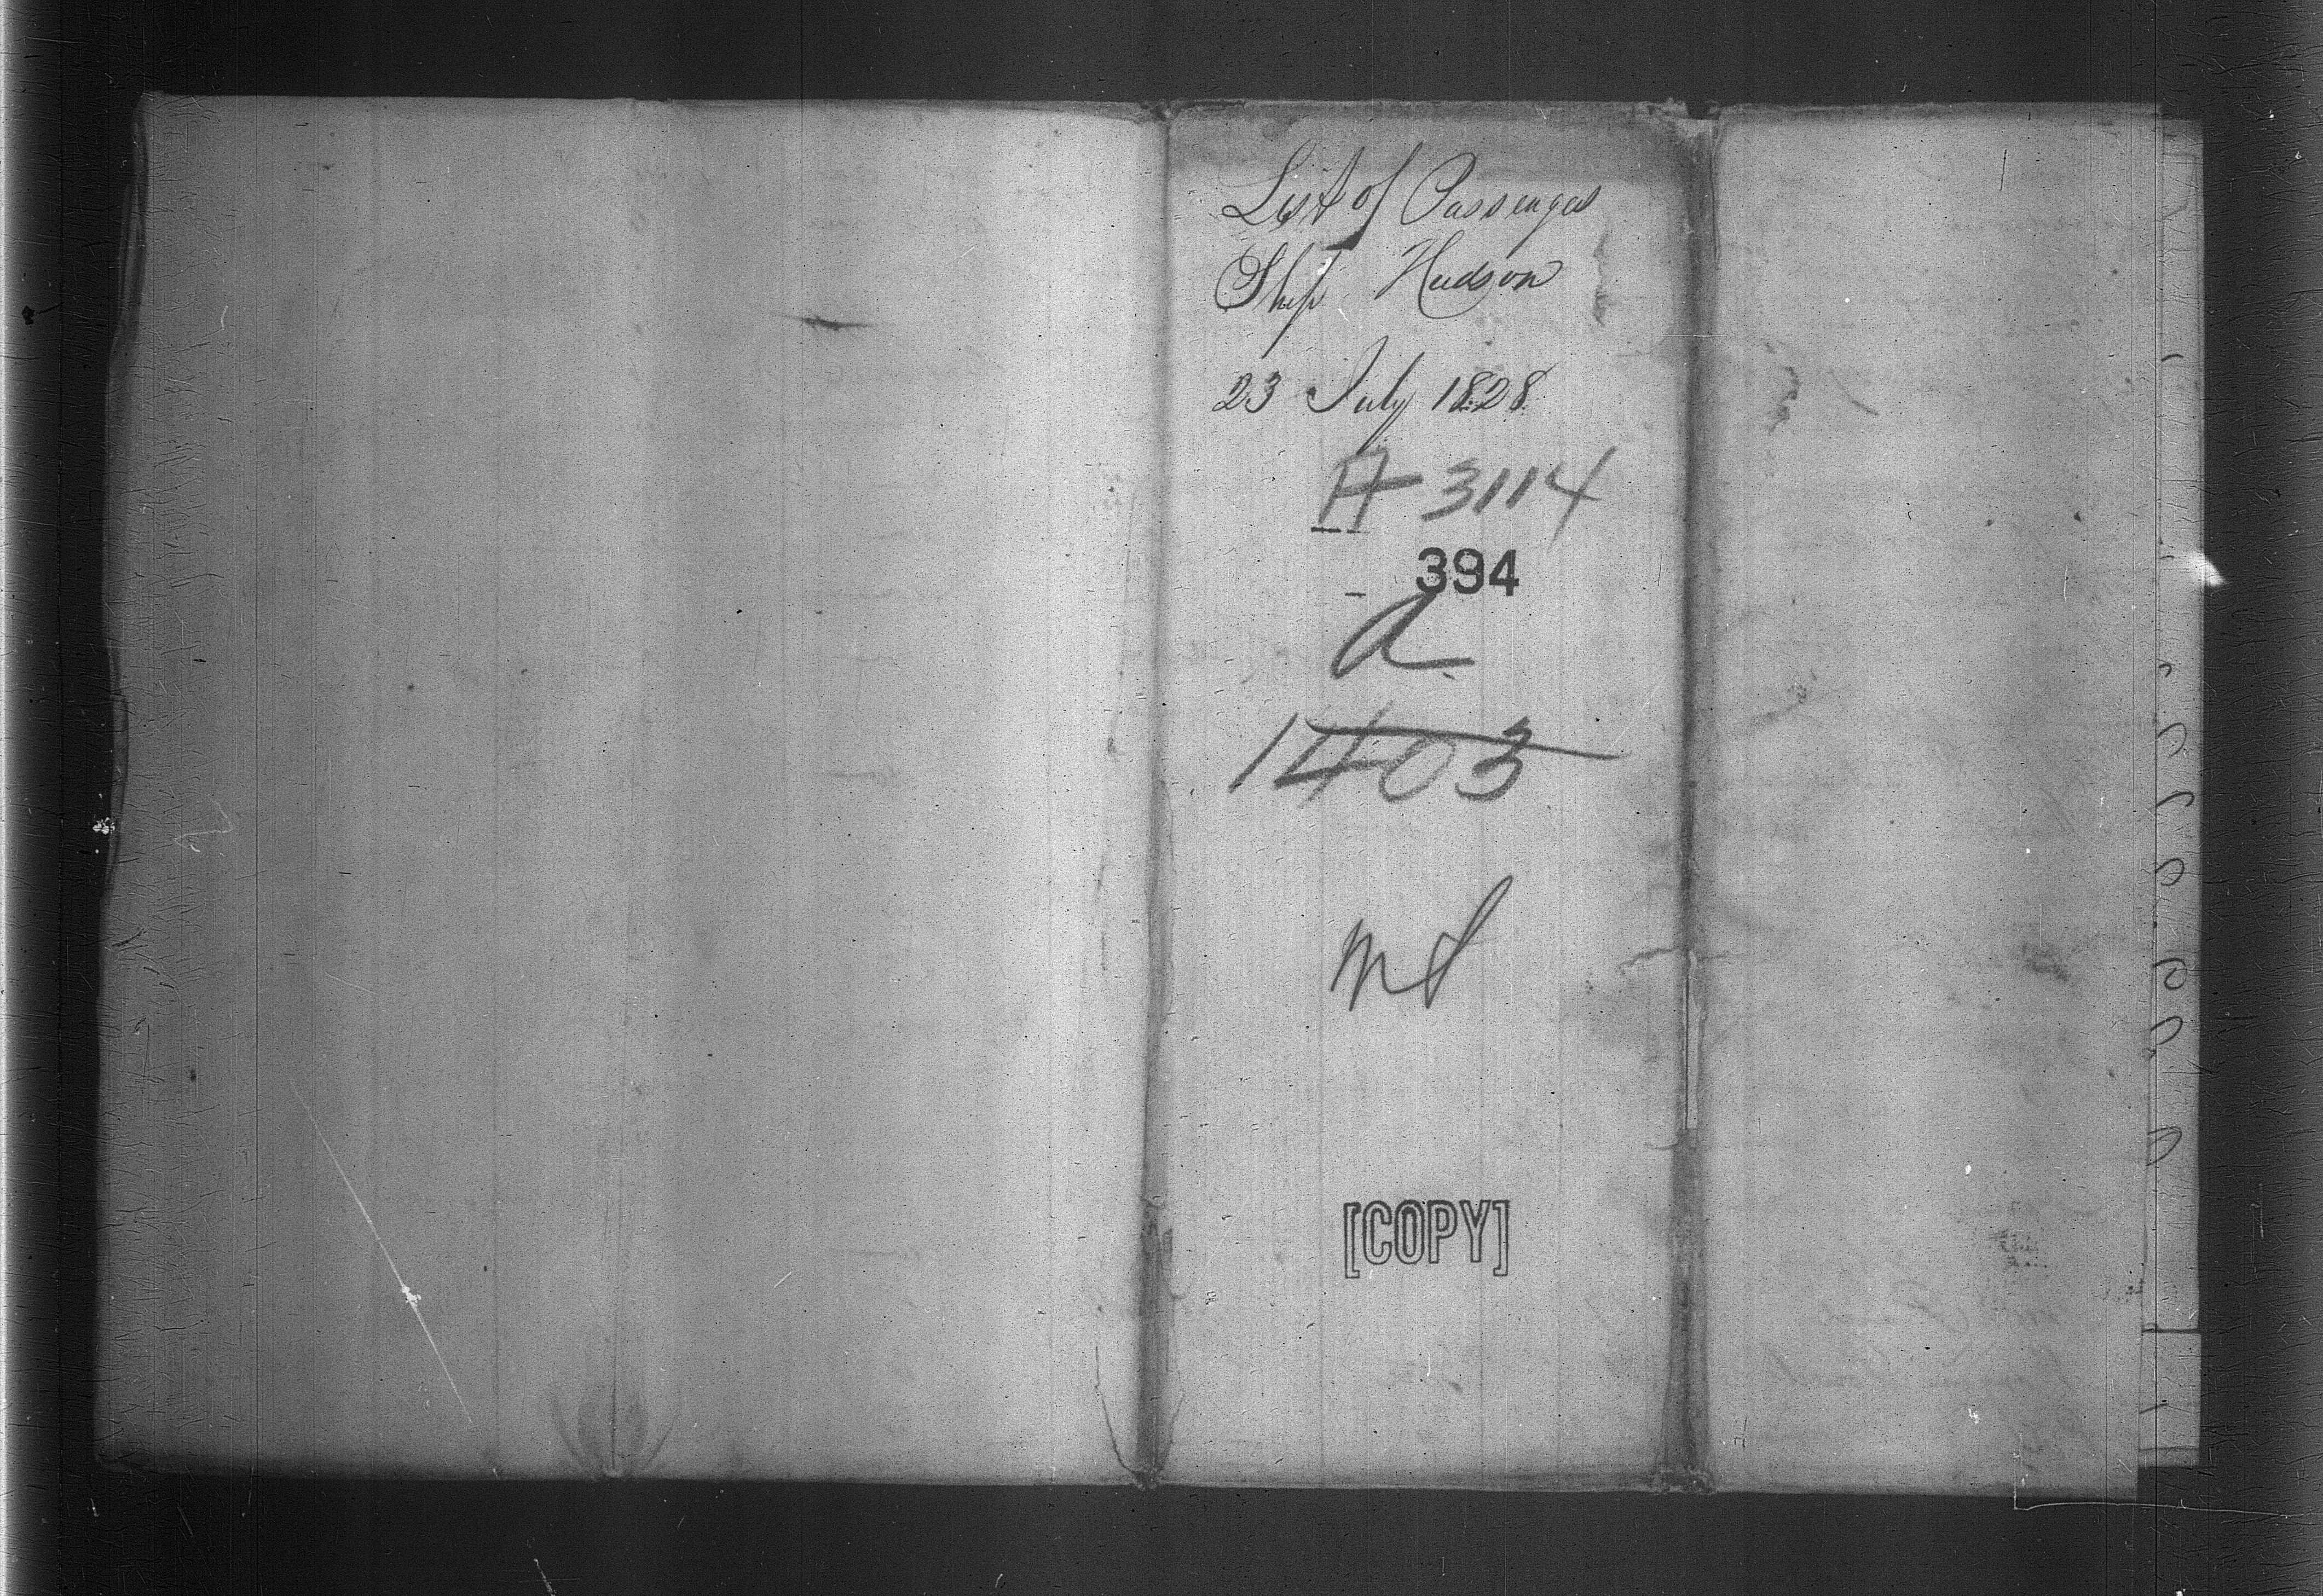 List of Passengers
Ship Hudson
23 July 1828
A 3114
394
a
1403
[COPY]